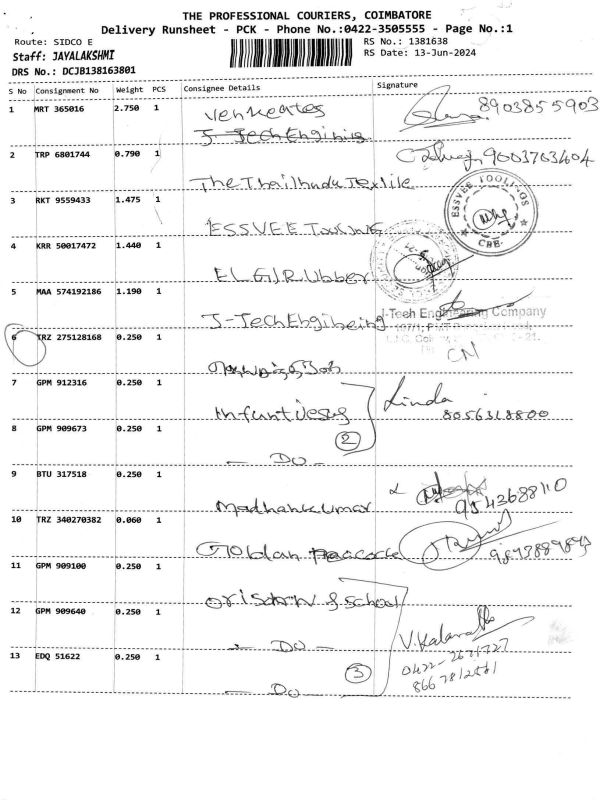 THE PROFESSIONAL COURIERS, COIMBATORE
Delivery Runsheet - PCK - Phone No.:0422-3505555 - Page No.:1
Route: SIDCO E
RS No.: 1381638
Staff: JAYALAKSHMI
RS Date: 13-Jun-2024
DRS No.: DCJB138163801
S No Consignment No Weight PCS Consignee Details Signature
1 MRT 365016 2.750 1 Venkeates 8903855903
J-TechEnginig
2 TRP 6801744 0.790 1 9003703604
The Thailhndu Textile
3 RKT 9559433 1.475 1
ESSVEE Tooling
ESSVEE TOOLINGS
CBE.
4 KRR 50017472 1.440 1
ELGI Rubber
5 MAA 574192186 1.190 1
J-TechEngineeing
J-Tech Engineering Company
6 TRZ 275128168 0.250 1
CN
7 GPM 912316 0.250 1 Linda
Infunt Jesus 8056318800
8 GPM 909673 0.250 1 2
- Do -
9 BTU 317518 0.250 1
Madhankumar 9543688110
10 TRZ 340270382 0.060 1
Goldan Peacock
11 GPM 909100 0.250 1
12 GPM 909640 0.250 1
- Do -
13 EDQ 51622 0.250 1 3
- Do -